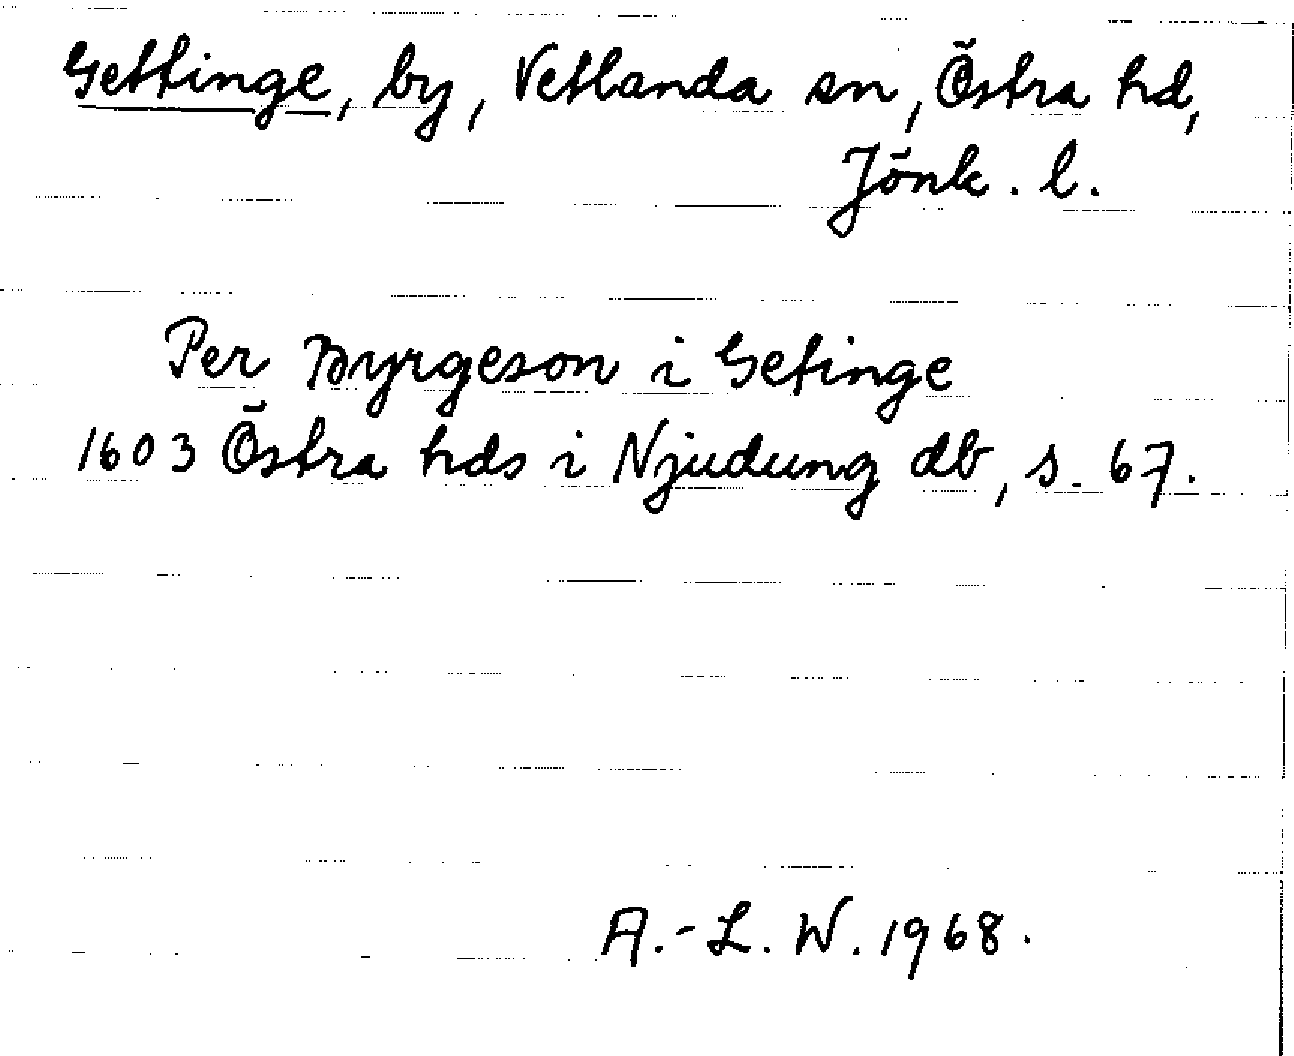 Gettinge, by, Vetlanda sn, Östra hd,
Jönk. l.
Per Byrgeson i Getinge
1603 Östra hds i Njudung db, s. 67.
A.-L. W. 1968.